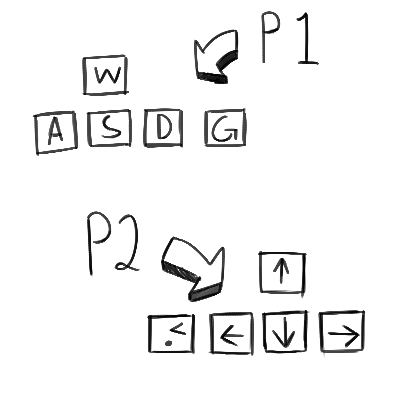 P1
W
A S D G
P2
↑
.< ← ↓ →